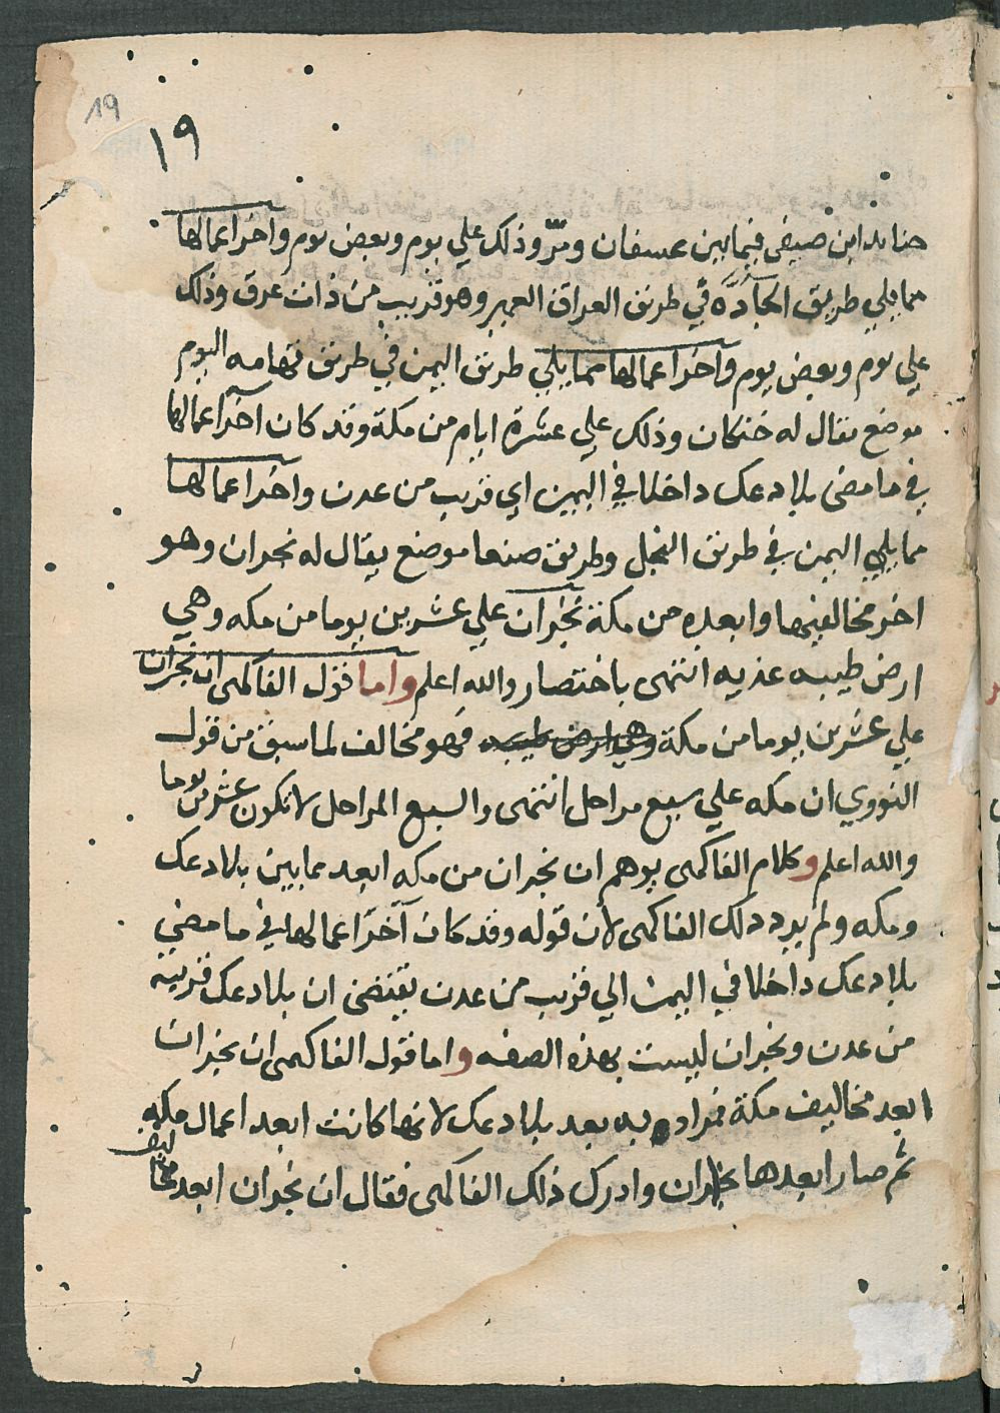 19
١٩
جنابد ابن صيفي فيما بين عسفان ومرّ وذلك علي يوم وبعض يوم وآخر اعمالها
مما يلي طريق الجآدّه في طريق العراق العمير وهو قريب من ذات عرق وذلك
علي يوم وبعض يوم وآخر اعمالها مما يلي طريق اليمن في طريق تهامه اليوم
موضع يقال له ضنكان وذلك علي عشرة ايام من مكة وقد كان آخر اعمالها
في ما مضي بلاد عك داخلا في اليمين اي قريب من عدن واخر اعمالها
مما يلي اليمن في طريق النجل وطريق صنعا موضع يقال له نجران وهو
اخر مخاليفها وابعده من مكة نجران علي عشرين يوما من مكه وهي
ارض طيبه عذيه انتهى باختصار والله اعلم واما قول الفاكهى ان نجران
علي عشرين يوما من مكة وهي ارض طيبه فهو مخالف لما سبق من قول
النووي ان مكه علي سبع مراحل انتهى والسبع المراحل لا تكون عشرين يوما
والله اعلم وكلام الفاكهى يوهم ان نجران من مكه ابعد مما بين بلاد عك
ومكه ولم يرد ذلك الفاكهى لأن قوله وقد كان آخر اعمالها في ما مضي
بلاد عك داخلا في اليمن الي قريب من عدن يقتضى ان بلاد عك قريبه
من عدن ونجران ليست بهذه الصفه واما قول الفاكهى ان نجران
ابعد مخاليف مكة فمراده به بعد بلاد عك لانها كانت ابعد اعمال مكه
ثم صار ابعدها نجران وادرك ذلك الفاكهى فقال ان نجران ابعد مخاليف